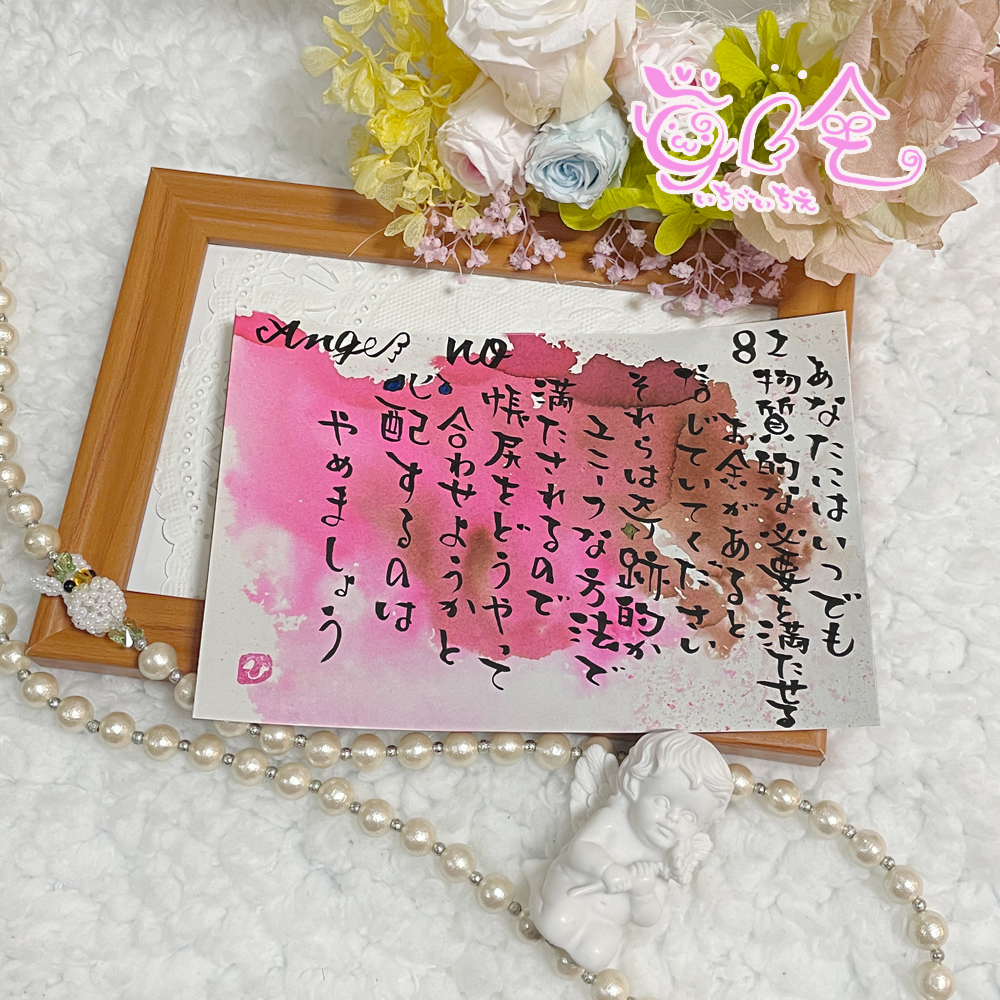 Angel no 82
あなたにはいつでも
物質的な必要を満たせる
お金があると
信じていてください
それらは奇跡的か
ユニークな方法で
満たされるので
帳尻をどうやって
合わせようかと
心配するのは
やめましょう
いちごいちえ